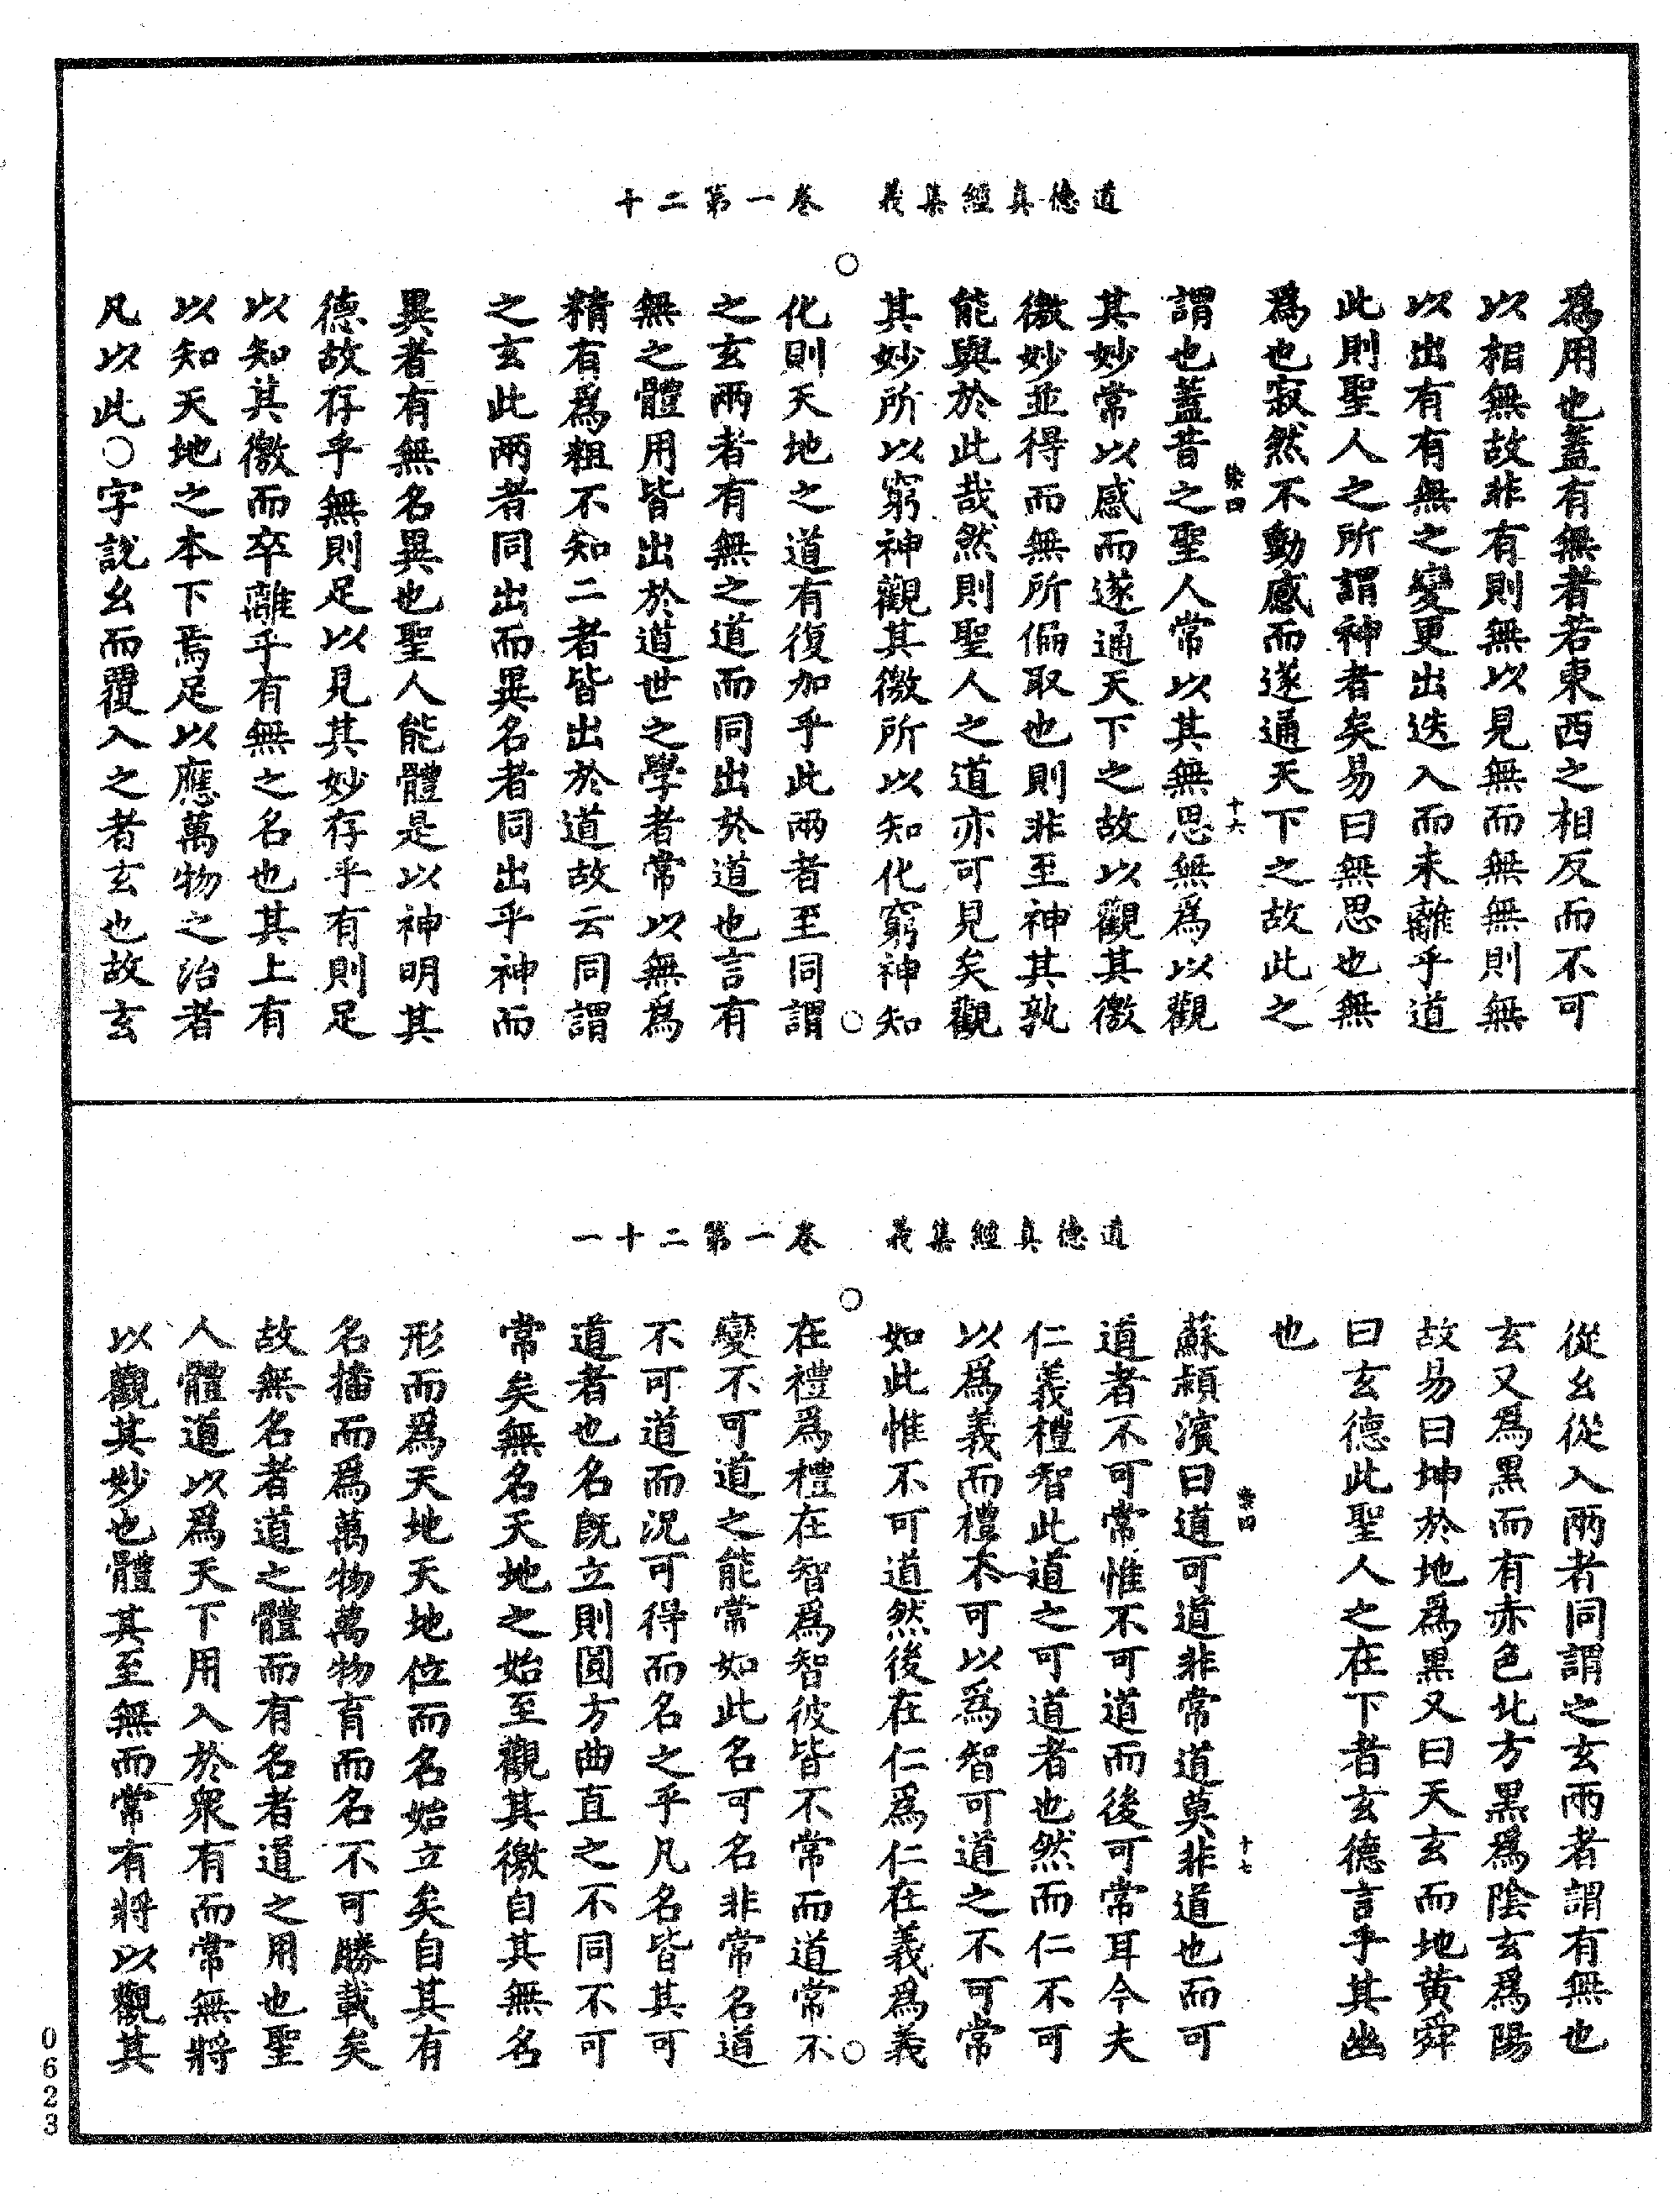 道德真經集義　卷一第二十
爲用也蓋有無者若東西之相反而不可
以相無故非有則無以見無而無無則無
以出有有無之變更出迭入而未離乎道
此則聖人之所謂神者矣易曰無思也無
爲也寂然不動感而遂通天下之故此之
謂也蓋昔之聖人常以其無思無爲以觀
其妙常以感而遂通天下之故以觀其徼
徼妙並得而無所偏取也則非至神其孰
能與於此哉然則聖人之道亦可見矣觀
其妙所以窮神觀其徼所以知化窮神知
化則天地之道有復加乎此兩者至同謂
之玄兩者有無之道而同出於道也言有
無之體用皆出於道世之學者常以無爲
精有爲粗不知二者皆出於道故云同謂
之玄此兩者同出而異名者同出乎神而
異者有無名異也聖人能體是以神明其
德故存乎無則足以見其妙存乎有則足
以知其徼而卒離乎有無之名也其上有
以知天地之本下焉足以應萬物之治者
凡以此○字說幺而覆入之者玄也故玄
十六
道德真經集義　卷一第二十一
從幺從入兩者同謂之玄兩者謂有無也
玄又爲黑而有赤色北方黑爲陰玄爲陽
故易曰坤於地爲黑又曰天玄而地黃舜
曰玄德此聖人之在下者玄德言乎其幽
也
蘇潁濱曰道可道非常道莫非道也而可
道者不可常惟不可道而後可常耳今夫
仁義禮智此道之可道者也然而仁不可
以爲義而禮不可以爲智可道之不可常
如此惟不可道然後在仁爲仁在義爲義
在禮爲禮在智爲智彼皆不常而道常不
變不可道之能常如此名可名非常名道
不可道而況可得而名之乎凡名皆其可
道者也名既立則圓方曲直之不同不可
常矣無名天地之始至觀其徼自其無名
形而爲天地天地位而名始立矣自其有
名播而爲萬物萬物育而名不可勝載矣
故無名者道之體而有名者道之用也聖
人體道以爲天下用入於衆有而常無將
以觀其妙也體其至無而常有將以觀其
十七
0623